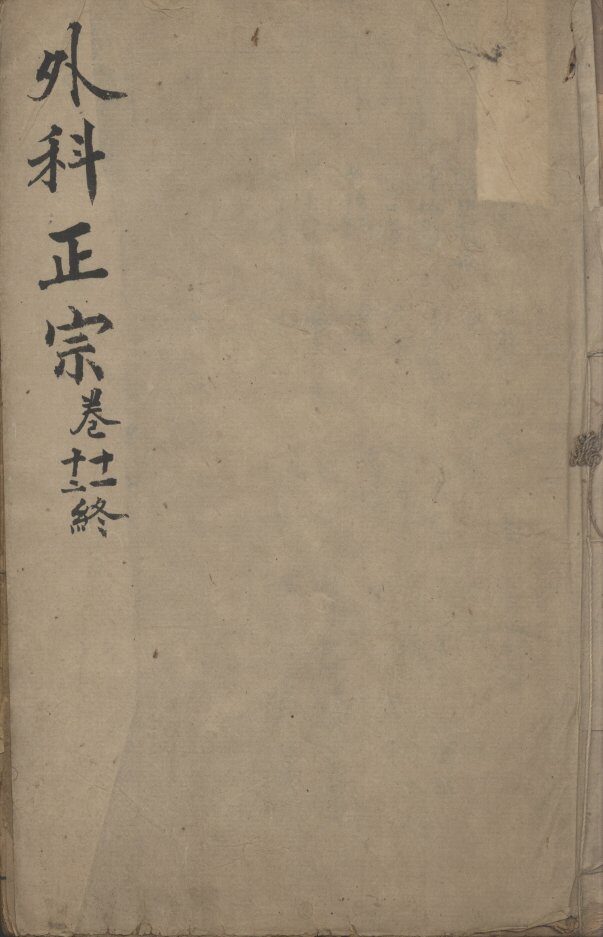 外科正宗卷十一十二終